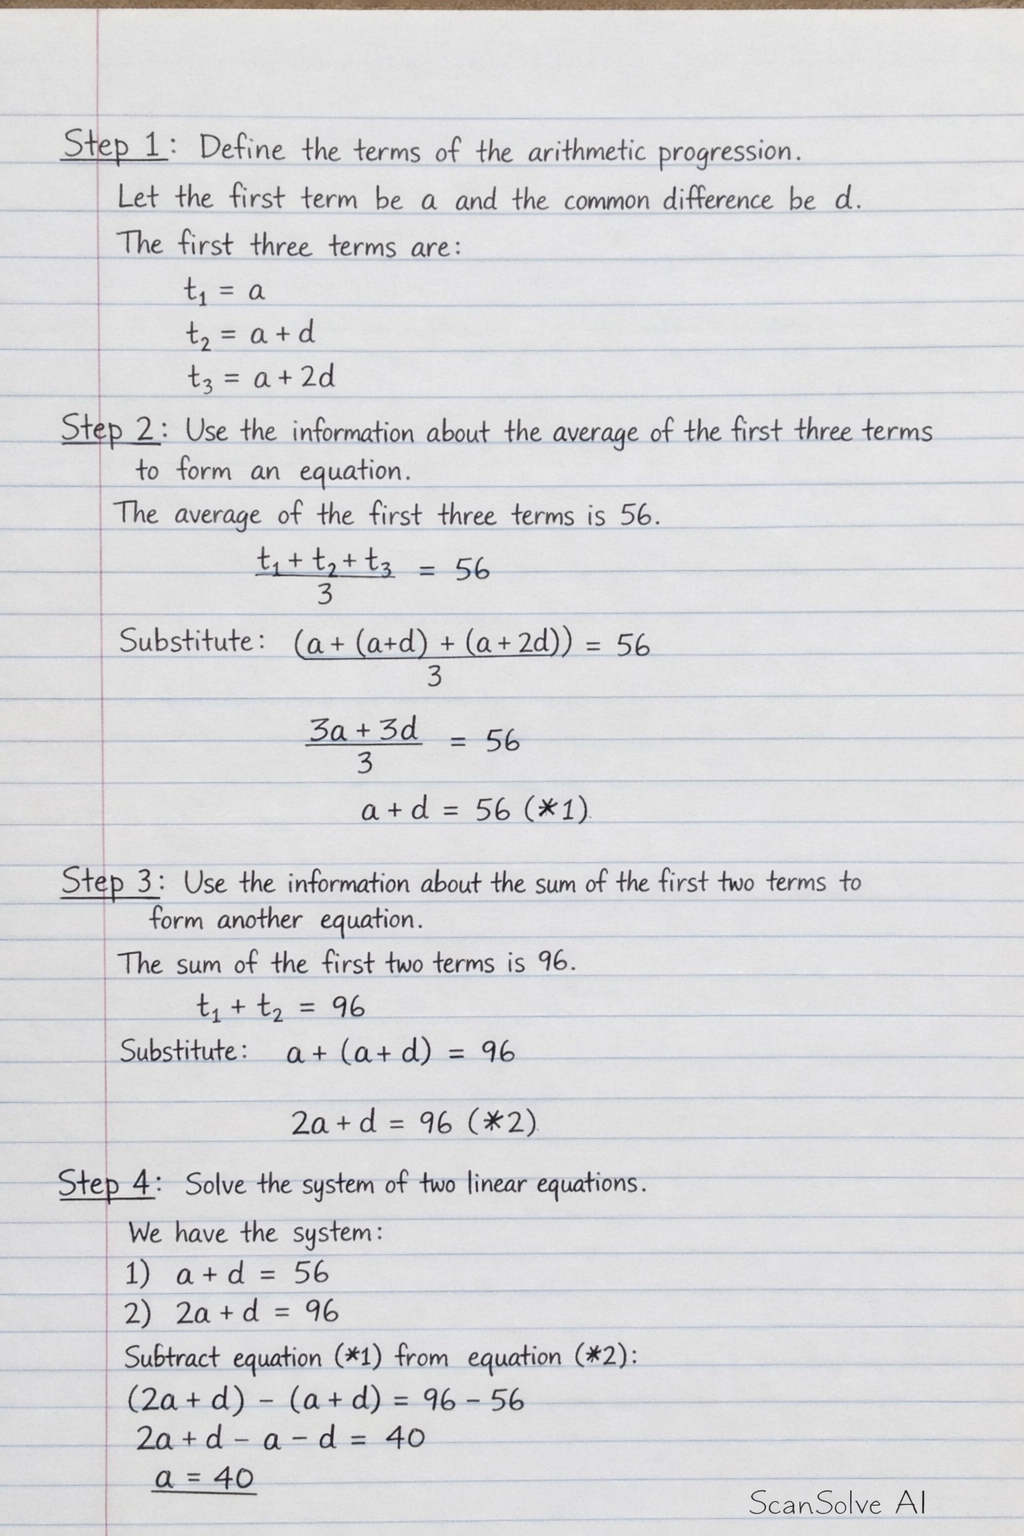 Step 1: Define the terms of the arithmetic progression.
Let the first term be a and the common difference be d.
The first three terms are:
t₁ = a
t₂ = a + d
t₃ = a + 2d
Step 2: Use the information about the average of the first three terms
to form an equation.
The average of the first three terms is 56.
t₁ + t₂ + t₃ = 56
3
Substitute: (a + (a+d) + (a + 2d)) = 56
3
3a + 3d = 56
3
a + d = 56 (*1)
Step 3: Use the information about the sum of the first two terms to
form another equation.
The sum of the first two terms is 96.
t₁ + t₂ = 96
Substitute: a + (a + d) = 96
2a + d = 96 (*2)
Step 4: Solve the system of two linear equations.
We have the system:
1) a + d = 56
2) 2a + d = 96
Subtract equation (*1) from equation (*2):
(2a + d) - (a + d) = 96 - 56
2a + d - a - d = 40
a = 40
ScanSolve AI